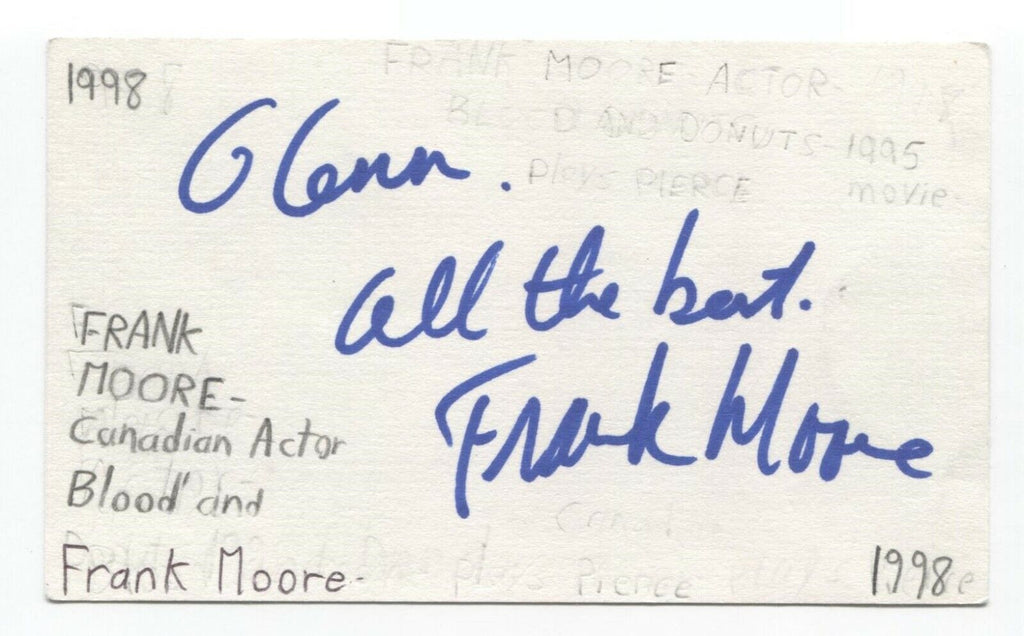 1998
FRANK MOORE - ACTOR-
AND DONUTS - 1995
Plays PIERCE movie-
Glenn.
all the best.
Frank Moore
FRANK
MOORE-
Canadian Actor
Blood and
plays Pierce
Frank Moore-
1998